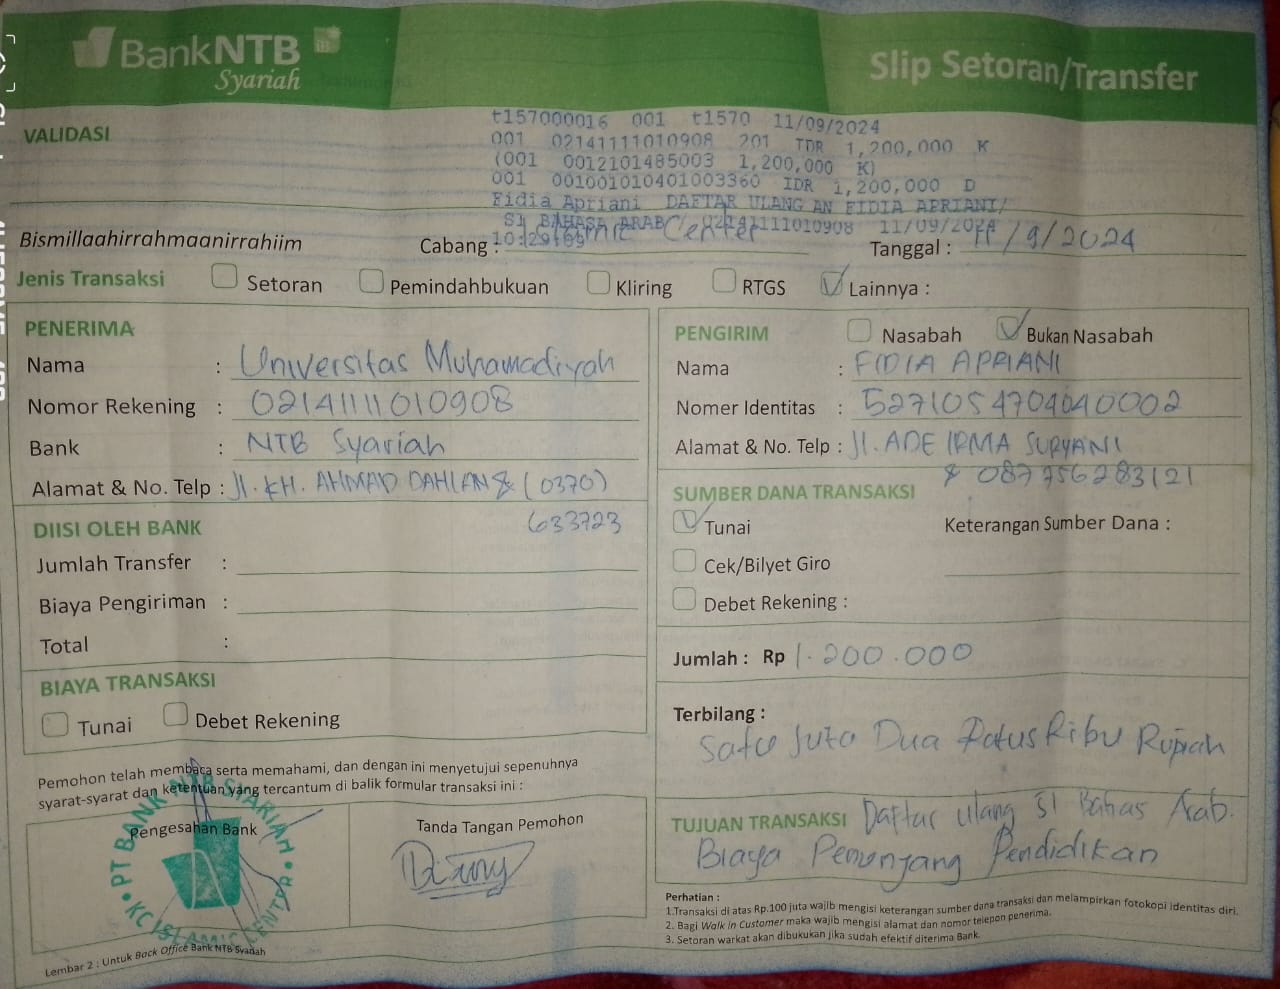 BankNTB
Syariah
Slip Setoran/Transfer
VALIDASI
t157000016 001 t1570 11/09/2024
001 02141111010908 201 IDR 1,200,000 K
(001 0012101485003 1,200,000 K)
001 001001010401003360 IDR 1,200,000 D
Fidia Apriani DAFTAR ULANG AN FIDIA APRIANI/
S1 BAHASA ARAB 02141111010908 11/09/2024
10:29:09
Bismillaahirrahmaanirrahiim
Cabang : Islamic Center
Tanggal : 11/9/2024
Jenis Transaksi Setoran Pemindahbukuan Kliring RTGS Lainnya :
PENERIMA
Nama : Universitas Muhamadiyah
Nomor Rekening : 02141111010908
Bank : NTB Syariah
Alamat & No. Telp : Jl. KH. AHMAD DAHLAN & (0370)
633723
DIISI OLEH BANK
Jumlah Transfer :
Biaya Pengiriman :
Total :
BIAYA TRANSAKSI
Tunai Debet Rekening
Pemohon telah membaca serta memahami, dan dengan ini menyetujui sepenuhnya
syarat-syarat dan ketentuan yang tercantum di balik formular transaksi ini :
Pengesahan Bank
PT BANK NTB SYARIAH
KC ISLAMIC CENTER
Tanda Tangan Pemohon
Lembar 2 : Untuk Back Office Bank NTB Syariah
PENGIRIM Nasabah Bukan Nasabah
Nama : FIDIA APRIANI
Nomer Identitas : 5271054704040002
Alamat & No. Telp : Jl. ADE IRMA SURYANI
& 087756283121
SUMBER DANA TRANSAKSI
Tunai Keterangan Sumber Dana :
Cek/Bilyet Giro
Debet Rekening :
Jumlah : Rp 1.200.000
Terbilang :
Satu Juta Dua Ratus Ribu Rupiah
TUJUAN TRANSAKSI Daftar ulang S1 Bahas Arab.
Biaya Penunjang Pendidikan
Perhatian :
1.Transaksi di atas Rp.100 juta wajib mengisi keterangan sumber dana transaksi dan melampirkan fotokopi identitas diri.
2. Bagi Walk in Customer maka wajib mengisi alamat dan nomor telepon penerima.
3. Setoran warkat akan dibukukan jika sudah efektif diterima Bank.